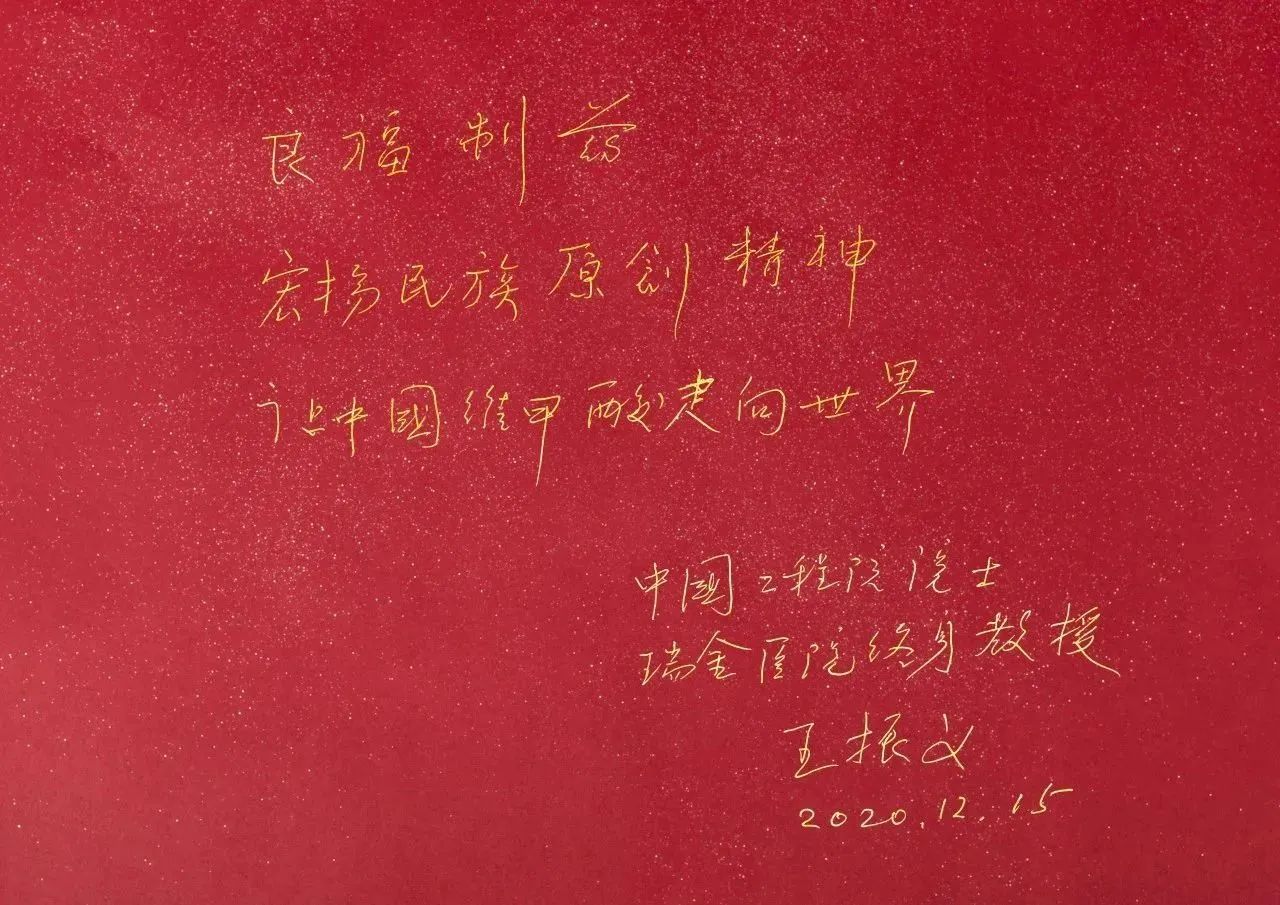 良福制药
宏扬民族原创精神
让中國维甲酸走向世界
中國工程院院士
瑞金医院终身教授
王振义
2020.12.15